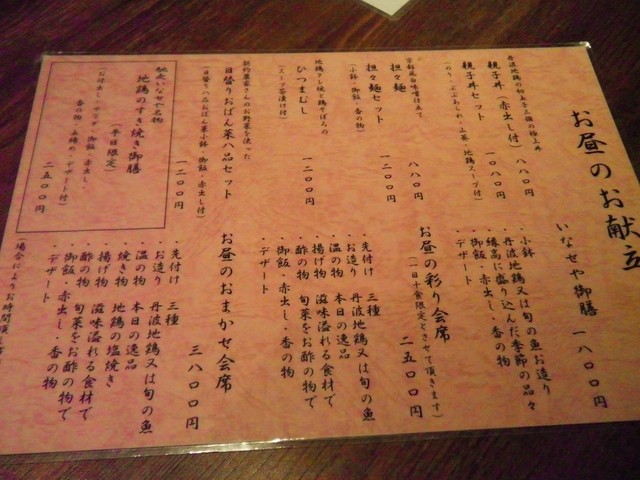 お昼のお献立
丹波地鶏の朝玉子三個の極上丼
親子丼(赤出し付) 八八〇円
親子丼セット 一〇八〇円
(のり・とふあしらわ・山菜・地鶏スープ付)
京都風白味噌仕立て
担々麺 八八〇円
担々麺セット 一二〇〇円
(小鉢・御飯・香の物)
地鶏てし焼と鶏そぼろの
ひつまむし 一二〇〇円
(スープ茶漬け付)
契約農家さんのお野菜を使った
日替りおばん菜八品セット 一二〇〇円
(日替り八品おばん菜小鉢・御飯・赤出し付)
馳走いなせや名物
地鶏のすき焼き御膳
(平日限定)
二五〇〇円
いなせや御膳 一八〇〇円
・小鉢
・丹波地鶏又は旬の魚お造り
・縁高に盛り込んだ季節の品々
・御飯・赤出し・香の物
・デザート
お昼の彩り会席
(一日十食限定とさせて頂きます)
二五〇〇円
・先付け 三種
・お造り 丹波地鶏又は旬の魚
・温の物 本日の逸品
・揚げ物 滋味溢れる食材で
・酢の物 旬菜をお酢の物で
・御飯・赤出し・香の物
・デザート
お昼のおまかせ会席
三八〇〇円
・先付け 三種
・お造り 丹波地鶏又は旬の魚
・温の物 本日の逸品
・焼き物 地鶏の塩焼き
・揚げ物 滋味溢れる食材で
・酢の物 旬菜をお酢の物で
・御飯・赤出し・香の物
・デザート
(場合によりお時間頂